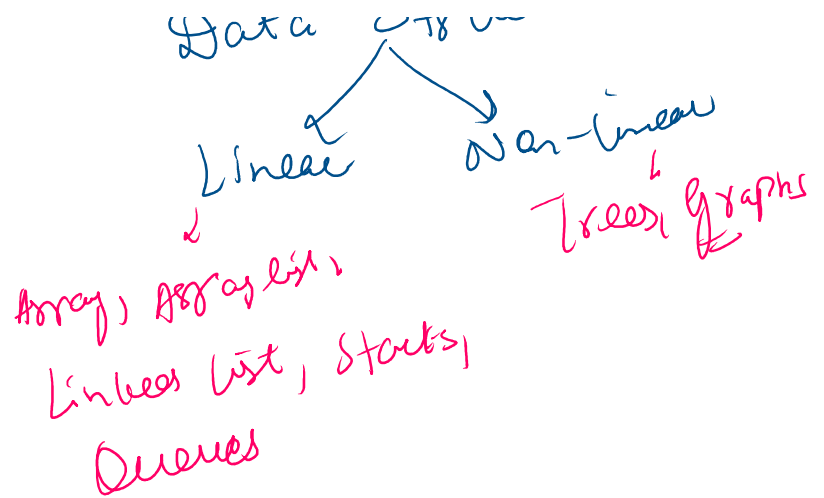 Data
Linear Non-linear
Trees, Graphs
Array, Arraylist,
Linked List, Stacks,
Queues